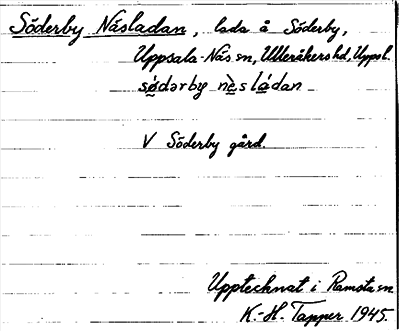 Söderby Näsladan, lada å Söderby,
Uppsala-Näs sn, Ulleråkers hd, Uppsl.
sødərby nès ládan
V Söderby gård.
Upptecknat i Ramsta sn
K.-H. Tapper 1945.